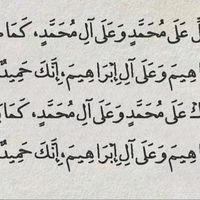 لِّ عَلَى مُحَمَّدٍ وَعَلَى آلِ مُحَمَّدٍ، كَمَا
هِيمَ وَعَلَى آلِ إِبْرَاهِيمَ، إِنَّكَ حَمِيدٌ
كْ عَلَى مُحَمَّدٍ وَعَلَى آلِ مُحَمَّدٍ، كَمَا
هِيمَ وَعَلَى آلِ إِبْرَاهِيمَ، إِنَّكَ حَمِيدٌ